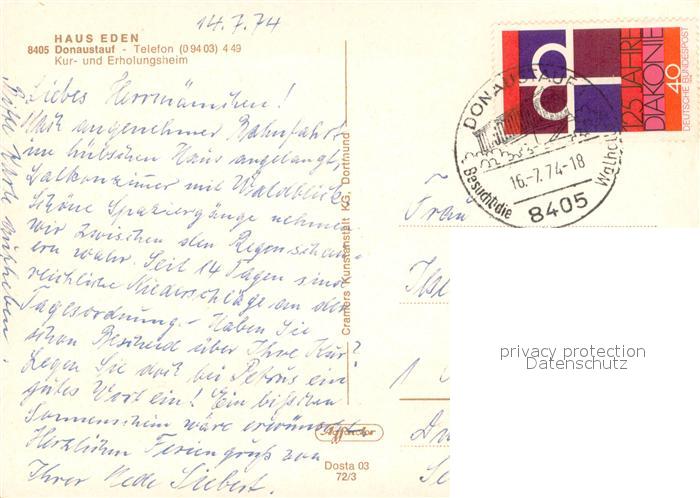 14.7.74
HAUS EDEN
8405 Donaustauf - Telefon (0 94 03) 4 49
Kur- und Erholungsheim
Liebes Herrmännchen!
Nach angenehmer Bahnfahrt
im hübschen Haus angelangt,
Balkonzimmer mit Waldblick.
Schöne Spaziergänge nehmen
wir zwischen den Regenschau-
ern wahr. Seit 14 Tagen sind
reichliche Niederschläge an der
Tagesordnung. - Haben Sie
schon Bescheid über Ihre Kur?
Legen Sie doch bei Petrus ein
gutes Wort ein! Ein bißchen
Sonnenschein wäre erwünscht.
Herzlichen Feriengruß von
Ihrer Siebert.
Bitte Karte aufheben!
Cramers Kunstanstalt KG, Dortmund
Dosta 03
72/3
125 JAHRE
DIAKONIE
40
DEUTSCHE BUNDESPOST
DONAUSTAUF
16.-7.74-18
Besucht die
8405
Frau
1
privacy protection
Datenschutz